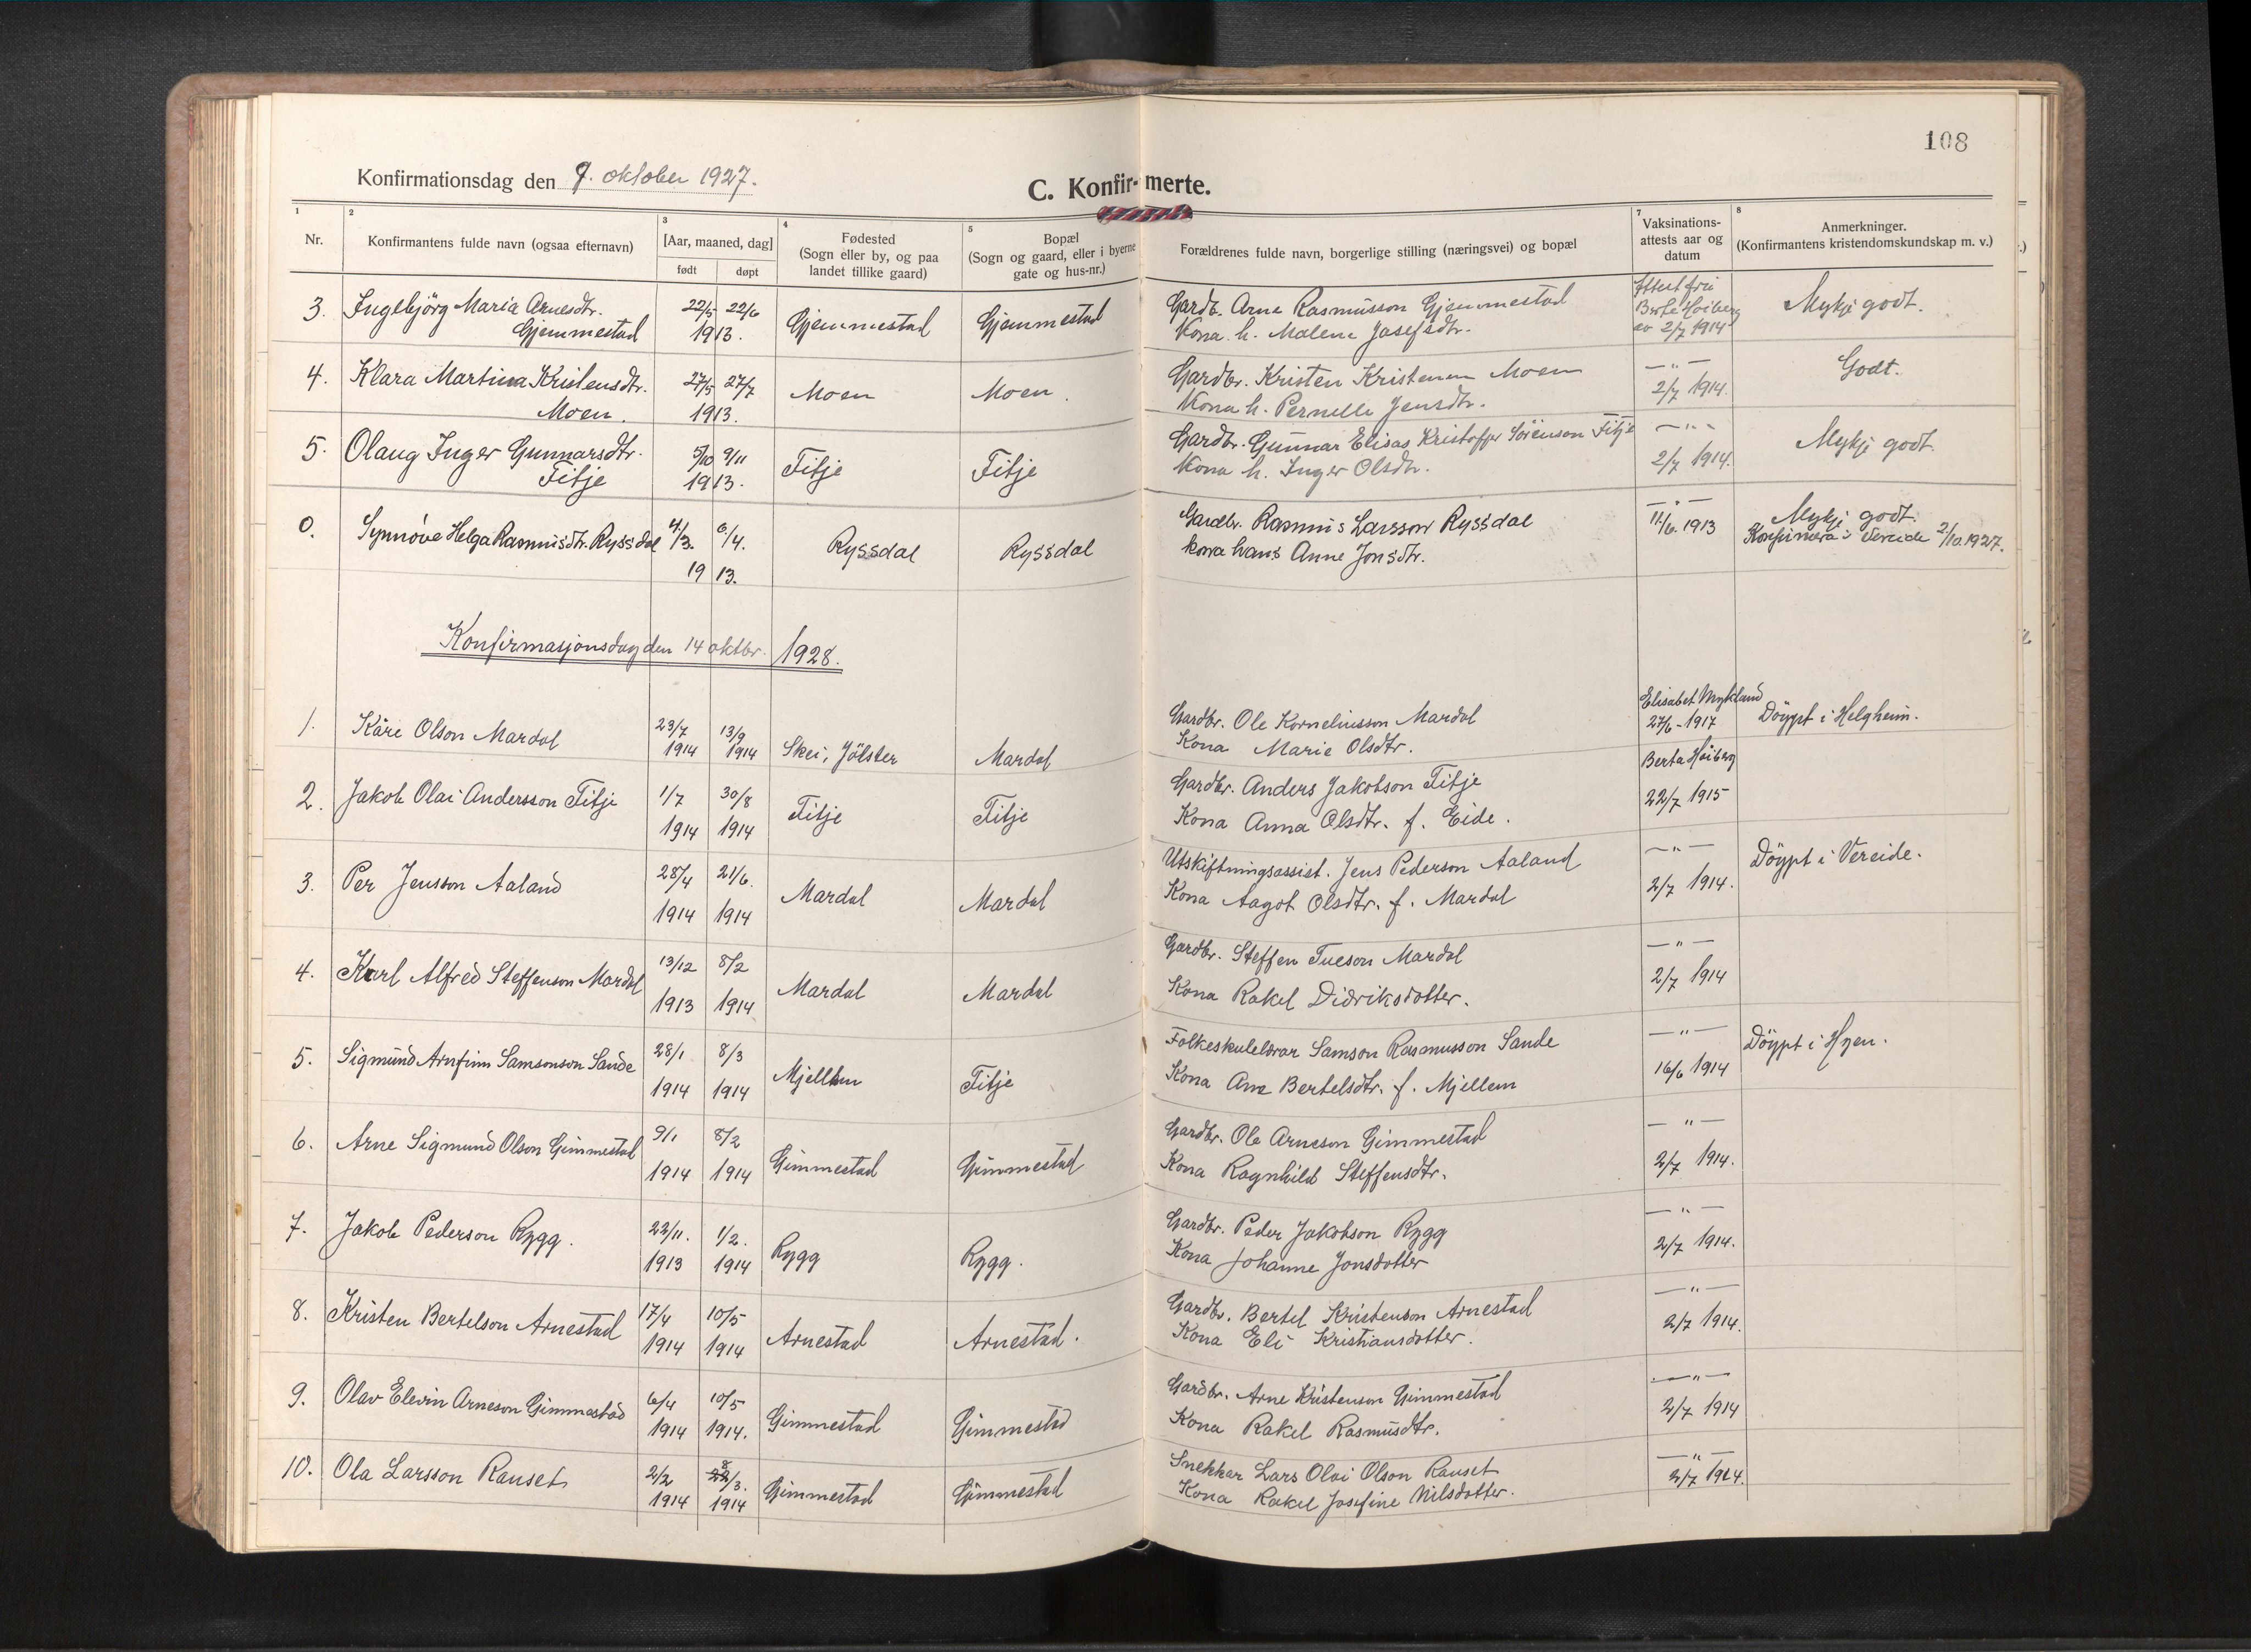 108
Konfirmationsdag den 9. oktober 1927.
C. Konfir-merte.
1 2 3 4 5 7 8
Nr. Konfirmantens fulde navn (ogsaa efternavn) [Aar, maaned, dag] født døpt Fødested (Sogn eller by, og paa landet tillike gaard) Bopæl (Sogn og gaard, eller i byerne gate og hus-nr.) Forældrenes fulde navn, borgerlige stilling (næringsvei) og bopæl Vaksinations-attests aar og datum Anmerkninger. (Konfirmantens kristendomskundskap m. v.)
3. Ingebjörg Maria Arnesdtr. 22/5 22/6 Gjemmestad Gjemmestad Gardb. Arne Rasmusson Gjemmestad Attest frå Berte Höiberg Mykje godt.
Gjemmestad 1913. Kona h. Malene Josefsdtr. av 2/7 1914
4. Klara Martina Kristensdtr. 27/5 27/7 Moen Moen. Gardbr. Kristen Kristensen Moen — " — Godt.
Moen. 1913. Kona h. Pernille Jensdtr. 2/7 1914.
5. Olaug Inger Gunnarsdtr. 5/10 9/11 Fitje Fitje Gardbr. Gunnar Elisas Kristoffer Sörenson Fitje — " — Mykje godt.
Fitje 1913. Kona h. Inger Olsdtr. 2/7 1914.
0. Synnöve Helga Rasmusdtr. Ryssdal 4/3. 6/4. Ryssdal Ryssdal Gardbr. Rasmus Larsson Ryssdal — " — Mykje godt.
1913. kona hans Anne Jonsdtr. 11/6. 1913 Konfirmera i Vereide 2/10 1927.
Konfirmasjonsdag den 14 oktbr. 1928.
1. Kåre Olson Mardal 23/7 13/9 Skei, Jölster Mardal Gardbr. Ole Korneliusson Mardal Elisabet Mykland Döypt i Helgheim.
1914 1914 Kona Marie Olsdtr. 27/6 - 1917
2. Jakob Olai Andersson Fitje 1/7 30/8 Fitje Fitje Gardbr. Anders Jakobson Fitje Berta Höiberg
1914 1914 Kona Anna Olsdtr. f. Eide. 22/7 1915
3. Per Jensson Aaland 28/4 21/6. Mardal Mardal Utskiftningsassist. Jens Pederson Aaland — " — Döypt i Vereide.
1914 1914 Kona Aagot Olsdtr. f. Mardal 2/7 1914.
4. Karl Alfred Steffenson Mardal 13/12 8/2 Mardal Mardal Gardbr. Steffen Tueson Mardal — " —
1913 1914 Kona Rakel Didriksdotter. 2/7 1914
5. Sigmund Arnfinn Samsonson Sande 28/1 8/3 Mjellem Fitje Folkeskulelærar Samson Rasmusson Sande — " — Döypt i Hyen.
1914 1914 Kona Ane Bertelsdtr. f. Mjellem 16/6 1914
6. Arne Sigmund Olson Gimmestad 9/1 8/2 Gimmestad Gimmestad Gardbr. Ole Arneson Gimmestad — " —
1914 1914 Kona Ragnhild Steffensdtr. 2/7 1914.
7. Jakob Pederson Rygg. 22/11. 1/2. Rygg Rygg. Gardbr. Peder Jakobson Rygg — " —
1913 1914 Kona Johanne Jonsdotter 2/7 1914.
8. Kristen Bertelson Arnestad 17/4 10/5 Arnestad Arnestad. Gardbr. Bertel Kristenson Arnestad — " —
1914 1914 Kona Eli Kristiansdotter. 2/7 1914.
9. Olav Elevin Arneson Gimmestad 6/4 10/5 Gimmestad Gimmestad Gardbr. Arne Kristenson Gimmestad — " —
1914 1914. Kona Rakel Rasmusdtr. 2/7 1914
10. Ola Larsson Ranset 2/2 8/3. Gimmestad Gimmestad Snekkar Lars Olai Olson Ranset — " —
1914 1914 Kona Rakel Josefine Nilsdotter. 2/7 1914.